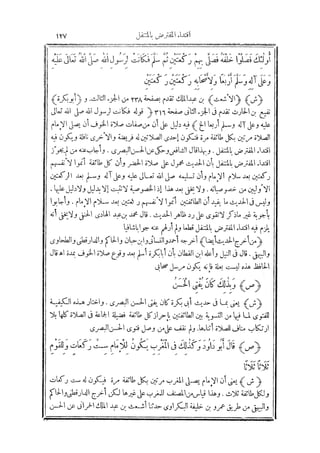 اقتداء المفترض بالمتنفل ١٢٧
أُولَئِكَ فَصَلَّوْا خَلْفَهُ فَصَلَّى بِهِمْ رَكْعَتَيْنِ ثُمَّ سَلَّمَ فَكَانَتْ لِرَسُولِ اللهِ صَلَّى اللهُ تَعَالَى عَلَيْهِ
وَعَلَى آلِهِ وَسَلَّمَ أَرْبَعًا وَلِأَصْحَابِهِ رَكْعَتَيْنِ رَكْعَتَيْنِ
﴿ش﴾ ﴿الأشعث﴾ بن عبدالملك تقدم بصفحة ٢٣٨ من الجزء الثالث. و ﴿أبوبكرة﴾
نفيع بن الحارث تقدم فى الجزء الثانى صفحة ٣١٦ ﴿قوله فكانت لرسول الله صلى الله تعالى
عليه وعلى آله وسلم أربعا الخ﴾ فيه دليل على أن من صفات صلاة الخوف أن يصلى الإمام
الصلاة مرتين بكل طائفة مرة فتكون إحدى الصلاتين له فريضة والأخرى نافلة ويكون فيه
اقتداء المفترض بالمتنفل. وبهذا قال الشافعى وحكى عن الحسن البصرى. وأجاب عنه من لم يجوز
اقتداء المفترض بالمتنفل بأن الحديث محمول على صلاة الحضر وأن كل طائفة أتموا لأنفسهم
ركعتين بعد سلام الإمام وأن تسليمه صلى الله تعالى عليه وعلى آله وسلم بعد الركعتين
الأوليين من خصوصياته. ولا يخفى بعد هذا إذ الخصوصية لا تثبت إلا بدليل ولا دليل عليها.
وليس فى الحديث ما يفيد أن الطائفتين أتموا لأنفسهم ركعتين بعد سلام الإمام. وأجابوا
بأجوبة غير ماذكر لا تقوى على رد ظاهر الحديث. قال محمد بن عبد الهادى الحنفى ولا يخفى أنه
يلزم فيه اقتداء المفترض بالمتنفل قطعا ولم أر لهم عنه جوابا شافيا
﴿من أخرج الحديث أيضا﴾ أخرجه أحمد والنسائى وابن حبان والحاكم والدارقطنى والطحاوى
والبيهقى. قال فى النيل وأعله ابن القطان بأن أبابكرة أسلم بعد وقوع صلاة الخوف بمدة اهـ قال
الحافظ هذه ليست بعلة فإنه يكون مرسل صحابى
﴿ص﴾ وَبِذَلِكَ كَانَ يُفْتِى الْحَسَنُ
﴿ش﴾ يعنى بما فى حديث أبى بكرة كان يفتى الحسن البصرى. واختار هذه الكيفية
للفتوى لما فيها من التسوية بين الطائفتين بإحراز كل طائفة فضيلة الجماعة فى الصلاة كلها بلا
ارتكاب مناف للصلاة أثناءها. ولم نقف على من وصل فتوى الحسن البصرى
﴿ص﴾ قَالَ أَبُو دَاوُدَ وَكَذَلِكَ فِى الْمَغْرِبِ يَكُونُ لِلْإِمَامِ سِتُّ رَكَعَاتٍ وَلِلْقَوْمِ
ثَلَاثًا ثَلَاثًا
﴿ش﴾ يعنى أن الإمام يصلى المغرب مرتين بكل طائفة مرة فيكون له ست ركعات
ولكل طائفة ثلاث. وهذا قياس من المصنف للمغرب على غيرها لكن أخرج الدارقطنى والحاكم
والبيهقى من طريق عمرو بن خليفة البكراوى حدثنا أشعث بن عبد الملك الحمرانى عن الحسن